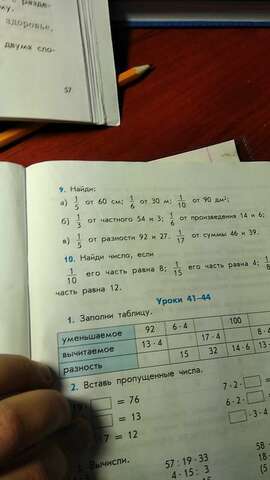 здоровье,
двумя сло-
57
9. Найди:
а) 1/5 от 60 см; 1/6 от 30 м; 1/10 от 90 дм²;
б) 1/3 от частного 54 и 3; 1/6 от произведения 14 и 6;
в) 1/5 от разности 92 и 27. 1/17 от суммы 46 и 39.
10. Найди число, если
1/10 его часть равна 8; 1/15 его часть равна 4;
часть равна 12.
Уроки 41–44
1. Заполни таблицу.
уменьшаемое 92 6·4 100
вычитаемое 13·4 17·4 8·4
разность 15 32 14·6
2. Вставь пропущенные числа.
= 76 7·2·
= 13 6·2·
7 = 12 ·3·4
Вычисли. 57 : 19 · 33
4 · 15 : 3